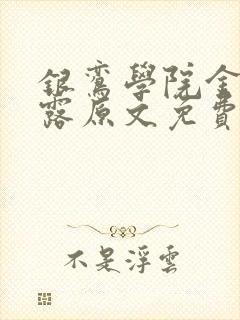 銀鸞學院金
露原文免費
不是浮雲